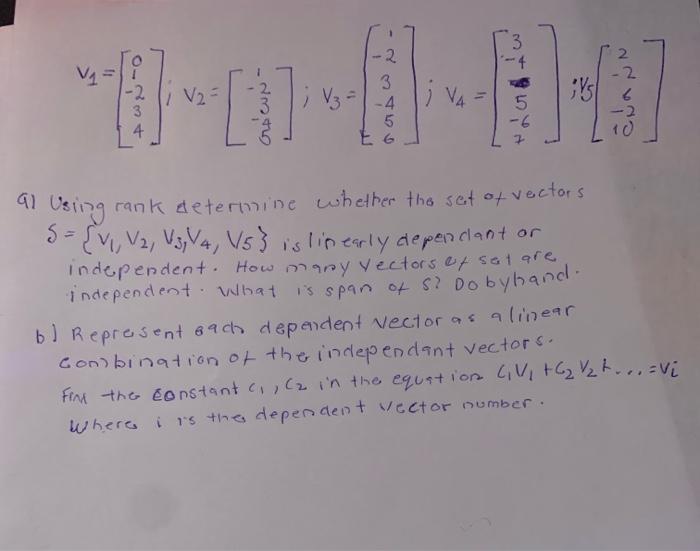 V1 = [0 1 -2 3 4] ; V2 = [1 -2 3 -4 5] ; V3 = [1 -2 3 -4 5 6] ; V4 = [3 -4 5 -6 7] ; V5 [2 -2 6 -2 10]
a) Using rank determine whether the set of vectors
S = {V1, V2, V3, V4, V5} is linearly dependant or
independent. How many vectors of set are
independent. What is span of S? Do by hand.
b) Represent each dependent vector as a linear
combination of the independant vectors.
Find the constant c1, c2 in the equation C1V1 + C2V2 + ... = Vi
Where i is the dependent vector number.